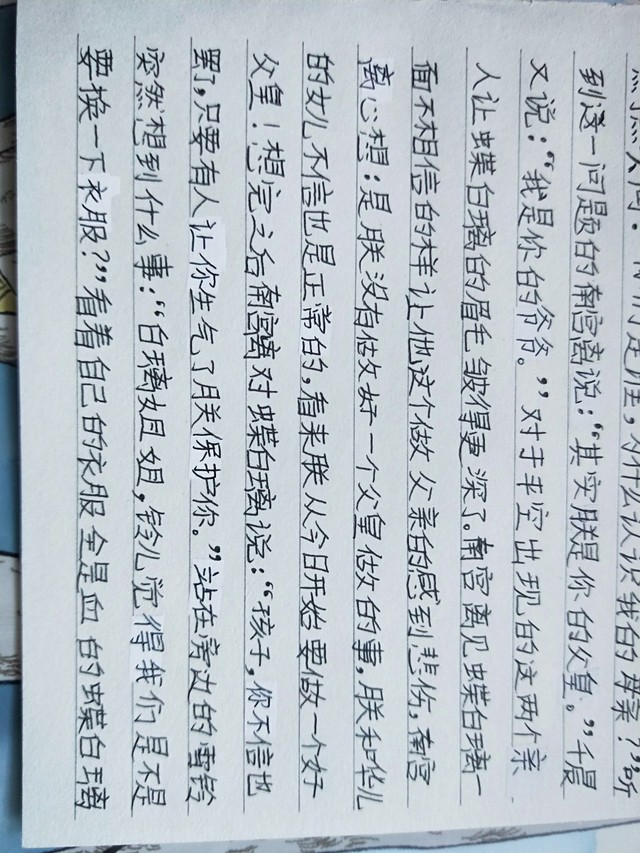 是谁,为什么认识我的母亲?”听
到这一问题的南宫离说:“其实朕是你的父皇。”千晨
又说:“我是你的爷爷。”对于半空出现的这两个亲
人让蝶白璃的眉毛皱得更深了。南宫离见蝶白璃一
面不相信的样让他这个做父亲的感到悲伤,南宫
离心想:是朕没有做好一个父皇做的事,朕和华儿
的女儿不信也是正常的,看来朕从今日开始要做一个好
父皇!想完之后南宫离对蝶白璃说:“孩子,你不信也
罢了,只要有人让你生气了朕保护你。”站在旁边的雪铃
突然想到什么事:“白璃姐姐,铃儿觉得我们是不是
要换一下衣服?”看着自己的衣服全是血的蝶白璃